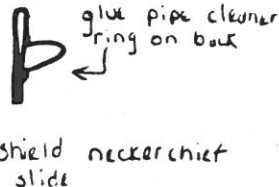 glue pipe cleaner
ring on back
shield neckerchief
slide